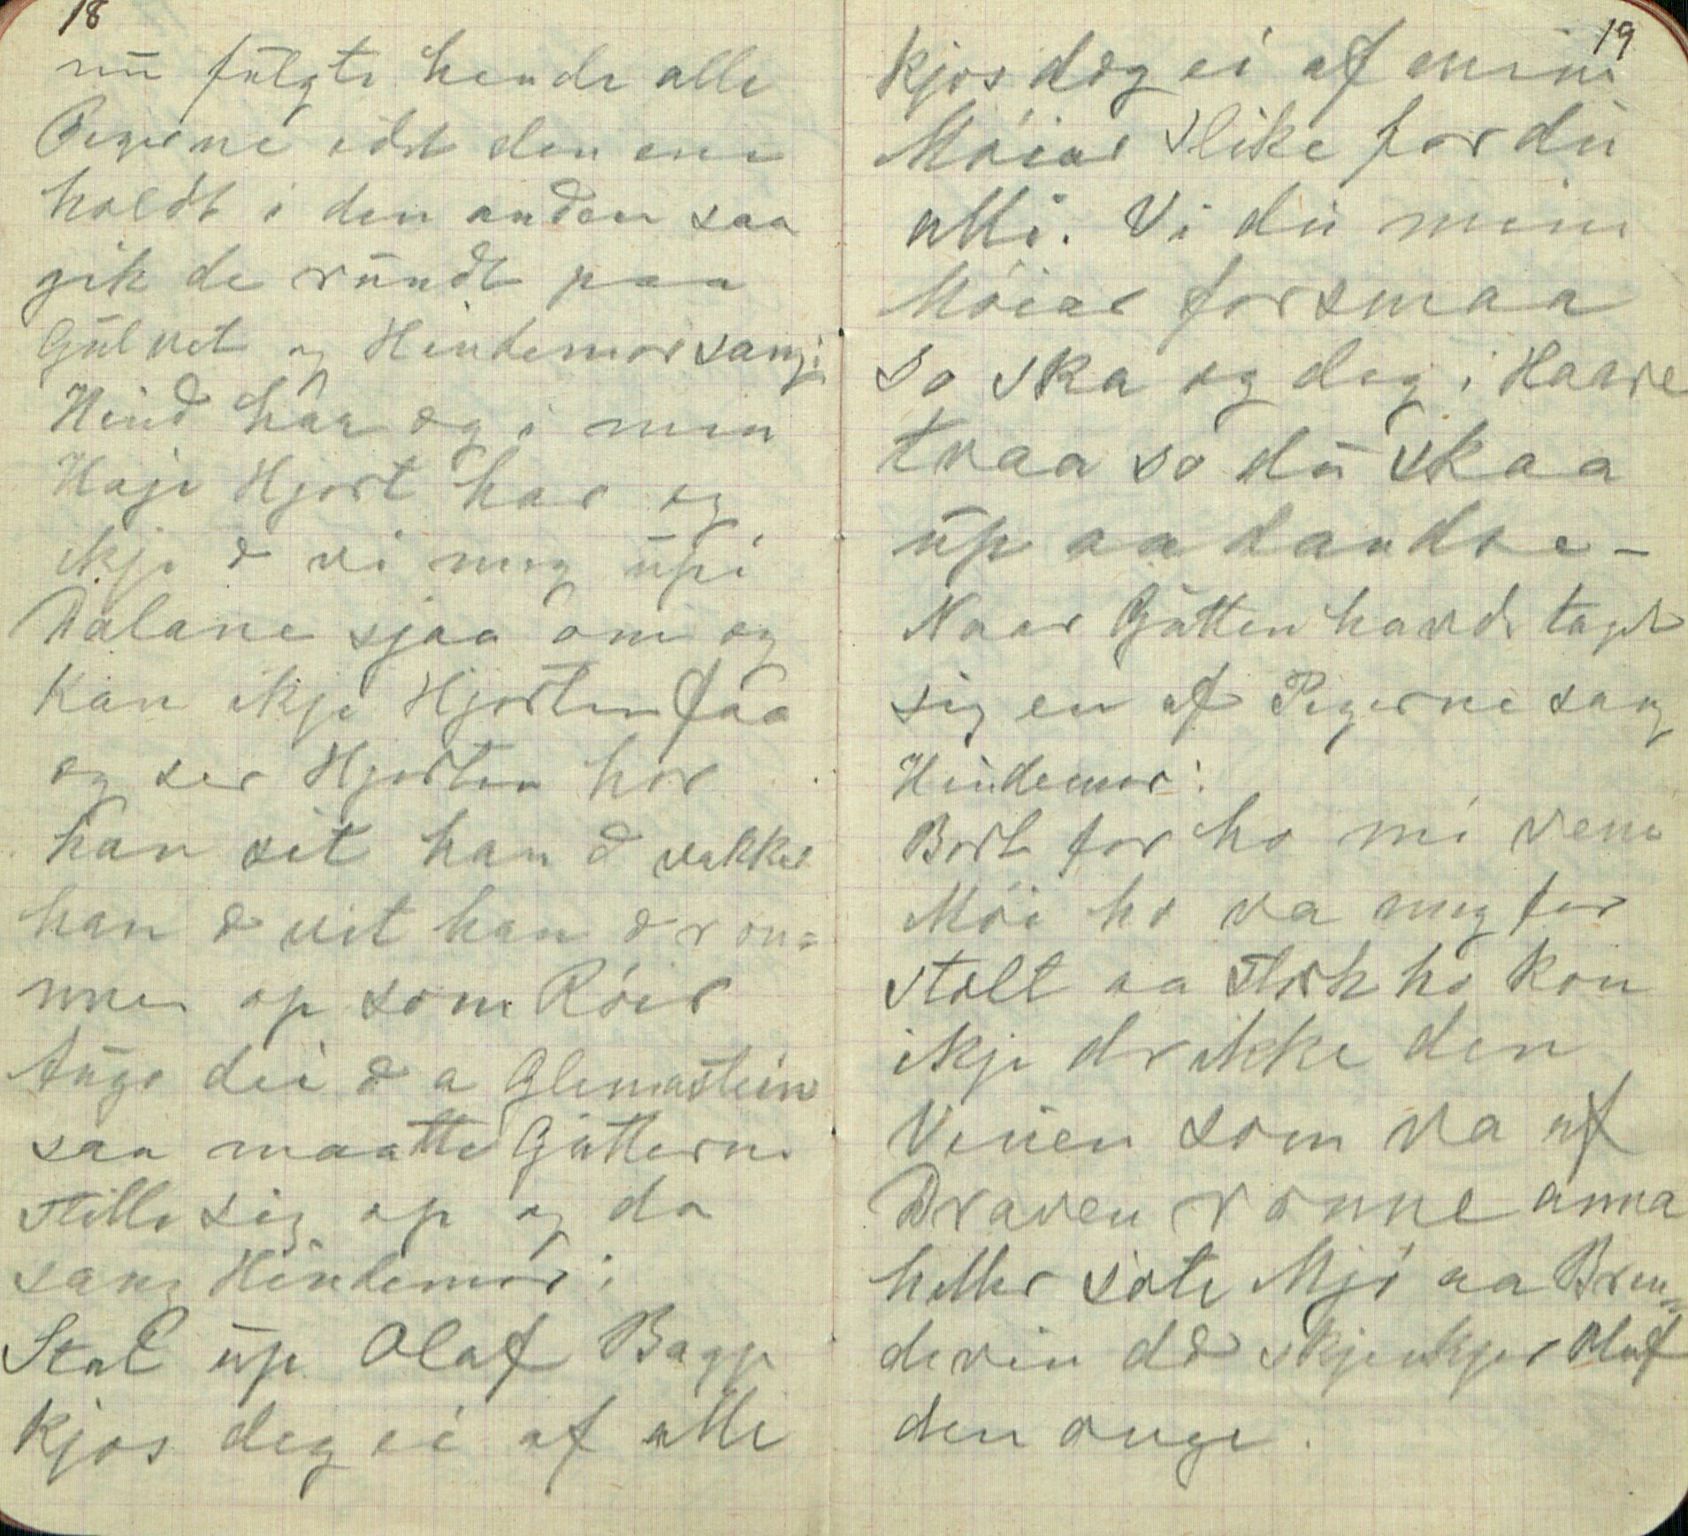 18
nu fulgte hende alle
Pigerne idet den ene
holdt i den anden saa
gik de rundt paa
Gulvet og Hindemor sang:
Hind har eg i min
Haje Hjort har eg
ikje æ vi meg upi
Dalane sjaa om eg
kan ikje Hjorten faa
eg ser Hjorten hor
han sit han æ vakker
han æ vit han æ ron=
nen op som Róir
Augo dei æ a Glimastein
saa maatte Gutterne
stille sig op og da
sang Hindemor:
Stat up Olaf Bagge
kjos deg ei af alle
19
kjos deg ei af mine
Möiar slike for du
alli. Vi du mine
Möiar forsmaa
so ska eg deg i Haare
tvaa so du skaa
up aa dandse —
Naar Gutten havde taget
sig en af Pigerne sang
Hindemor:
Bort for ho mi vene
Möi ho va meg for
stolt aa sterk ho kon
ikje drikke den
Vinen som va af
Draven ronne anna
heller søte Mjö aa Bren=
devin dæ skjenkjer Oluf
den onge.